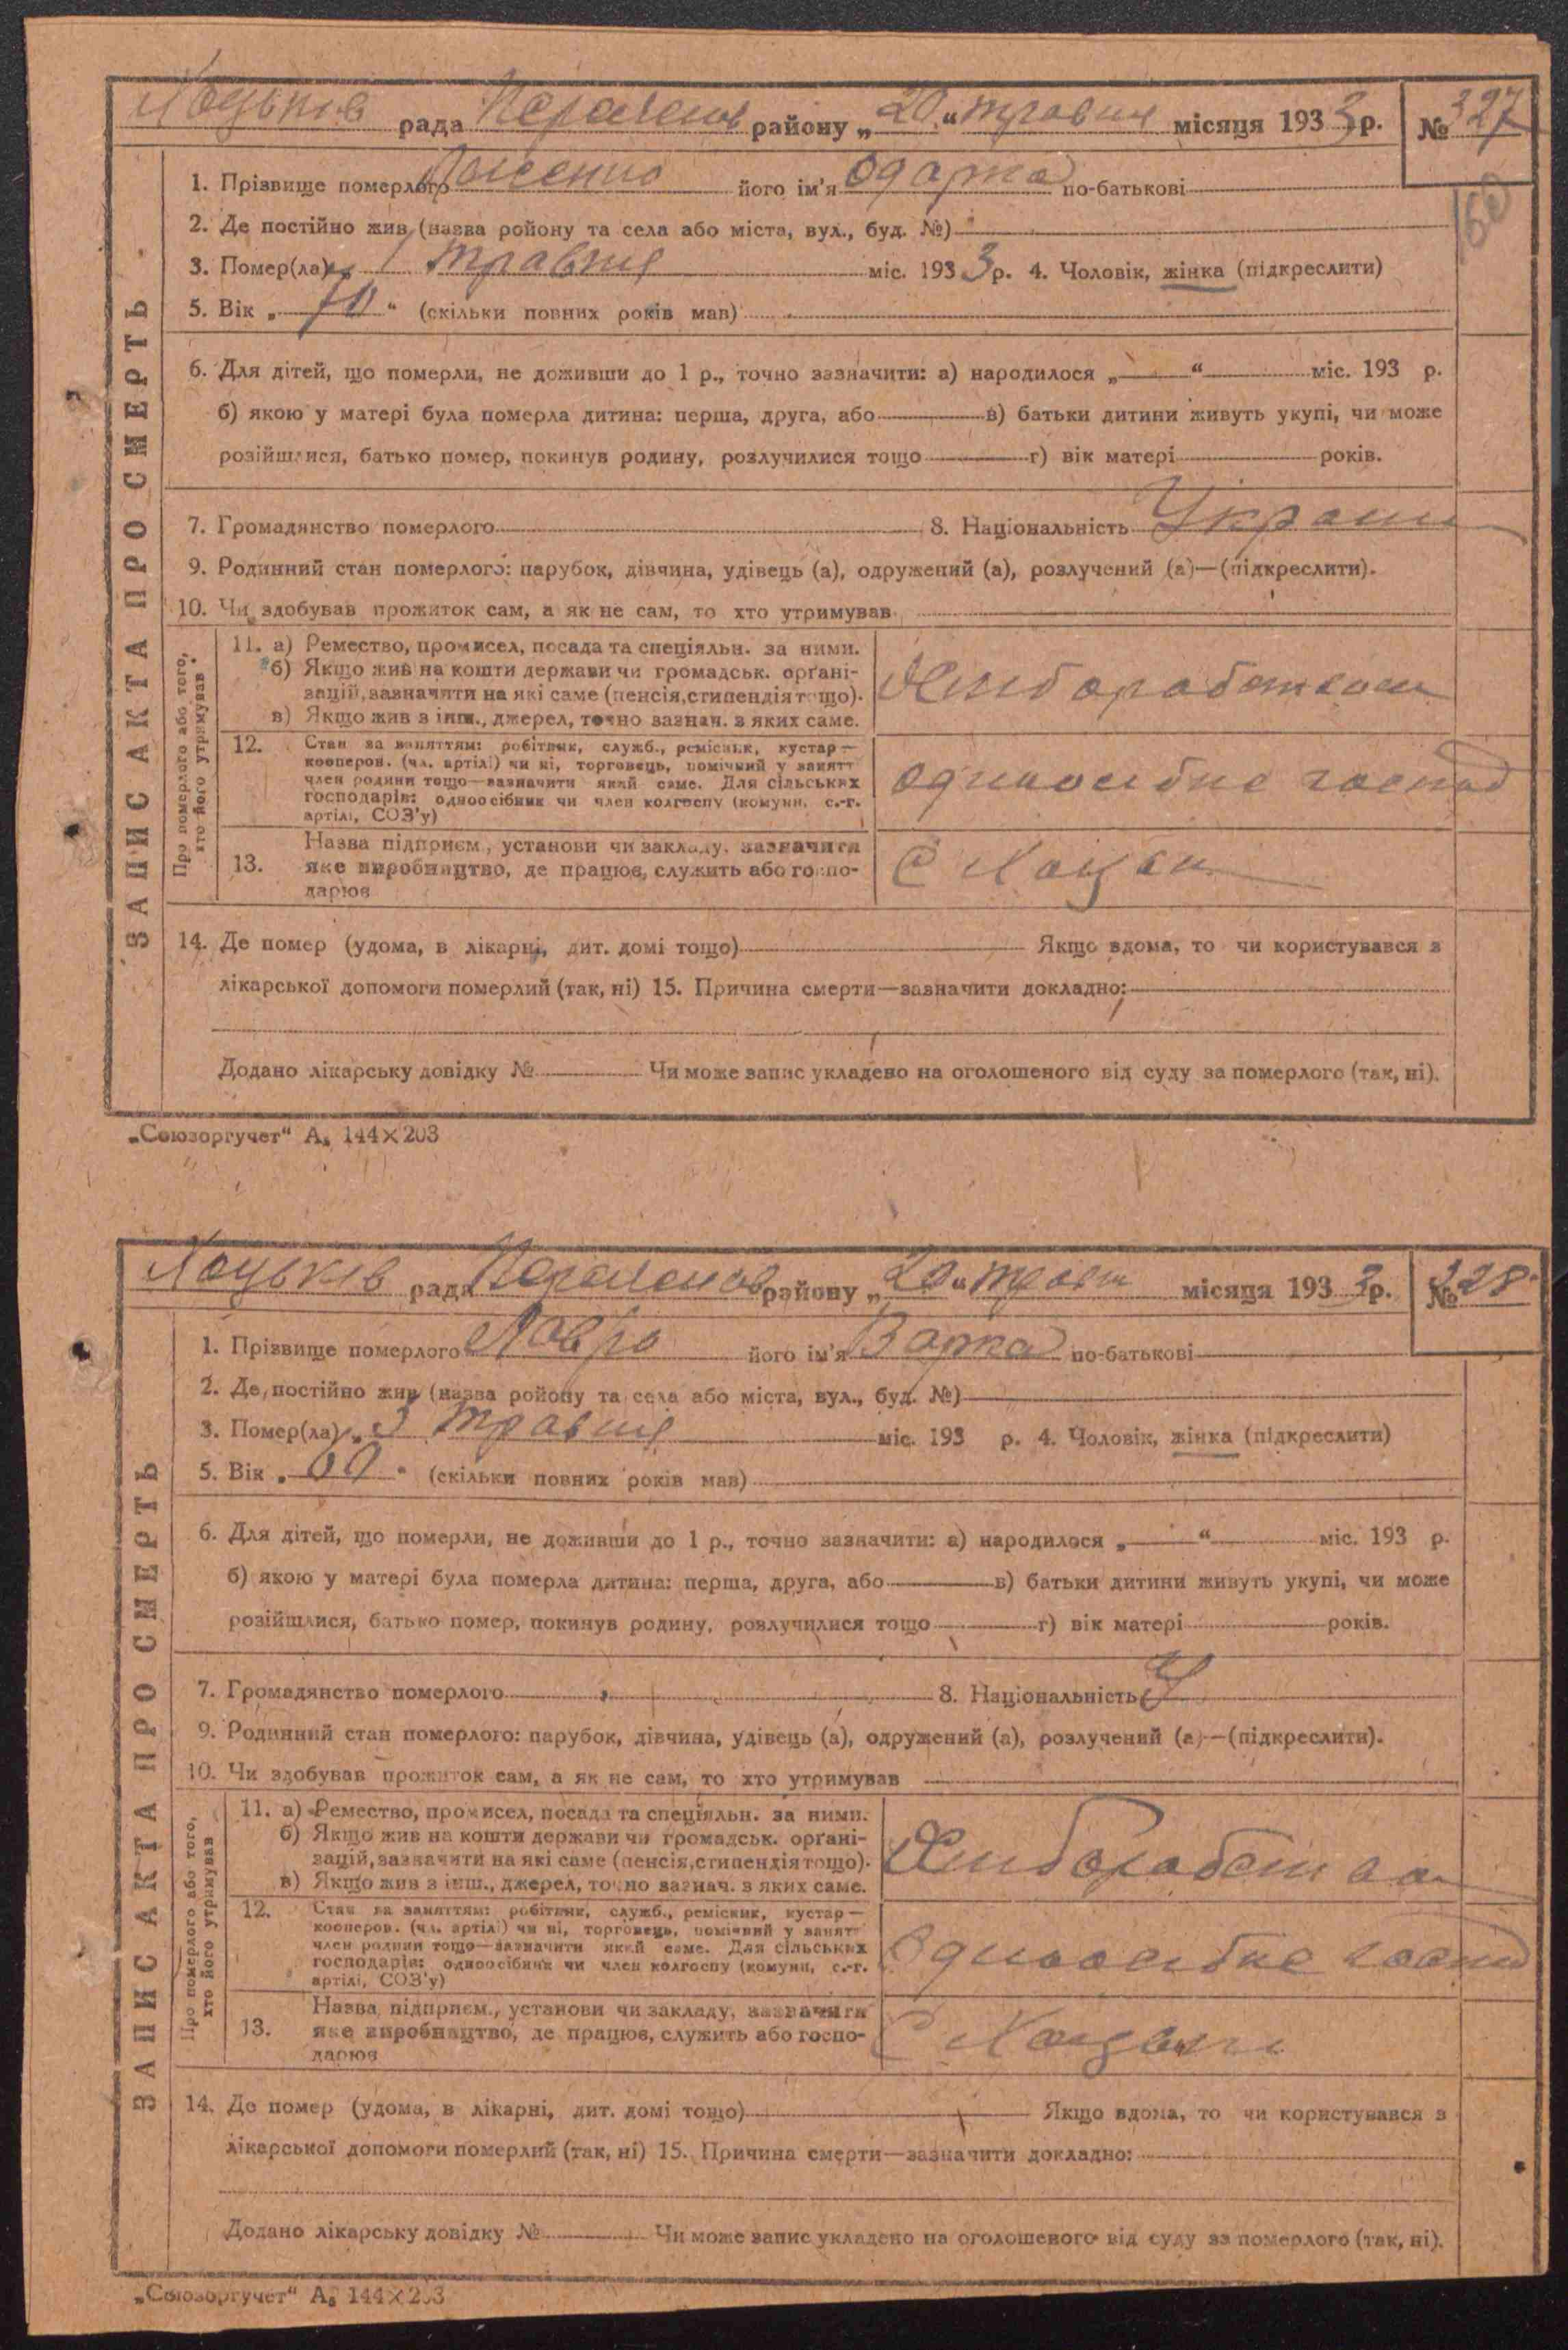 Хоцьків рада Переяслов району „20“ травня місяця 1933 р. № 327
160
1. Прізвище померлого його ім'я Одарка по-батькові
2. Де постійно жив (назва ройону та села або міста, вул., буд. №)
3. Помер(ла) „ 1 травня міс. 1933 р. 4. Чоловік, жінка (підкреслити)
5. Вік „ 70 “ (скільки повних років мав)
6. Для дітей, що померли, не доживши до 1 р., точно зазначити: а) народилося „ “ міс. 193 р.
б) якою у матері була померла дитина: перша, друга, або в) батьки дитини живуть укупі, чи може
розійшлися, батько помер, покинув родину, розлучилися тощо г) вік матері років.
7. Громадянство померлого 8. Національність Україн
9. Родинний стан померлого: парубок, дівчина, удівець (а), одружений (а), розлучений (а)—(підкреслити).
10. Чи здобував прожиток сам, а як не сам, то хто утримував
ЗАПИС АКТА ПРО СМЕРТЬ
Про померлого або того, хто його утримував
11. а) Ремество, промисел, посада та спеціяльн. за ними.
б) Якщо жив на кошти держави чи громадськ. орґані-
зацій, зазначити на які саме (пенсія, стипендія тощо).
в) Якщо жив з інш., джерел, точно зазнач. з яких саме.
Хліборобством
12. Стан за заняттям: робітник, служб., ремісник, кустар—
кооперов. (чл. артілі) чи ні, торговець, помічний у занятт
член родини тощо—зазначити який саме. Для сільських
господарів: одноосібник чи член колгоспу (комуни, с.-г.
артілі, СОЗ'у)
одноосібне господ
13. Назва підприєм., установи чи закладу, зазначити
яке виробництво, де працює, служить або госпо-
дарює
с Хоцьки
14. Де помер (удома, в лікарні, дит. домі тощо) Якщо вдома, то чи користувався з
лікарської допомоги померлий (так, ні) 15. Причина смерти—зазначити докладно:
Додано лікарську довідку № Чи може запис укладено на оголошеного від суду за померлого (так, ні).
„Союзоргучет“ А₅ 144×203
Хоцьків рада Переяслов району „20“ травня місяця 1933 р. № 328
1. Прізвище померлого Лавро його ім'я Варка по-батькові
2. Де постійно жив (назва ройону та села або міста, вул., буд. №)
3. Помер(ла) „ 3 травня міс. 193 р. 4. Чоловік, жінка (підкреслити)
5. Вік „ “ (скільки повних років мав)
6. Для дітей, що померли, не доживши до 1 р., точно зазначити: а) народилося „ “ міс. 193 р.
б) якою у матері була померла дитина: перша, друга, або в) батьки дитини живуть укупі, чи може
розійшлися, батько помер, покинув родину, розлучилися тощо г) вік матері років.
7. Громадянство померлого 8. Національність У
9. Родинний стан померлого: парубок, дівчина, удівець (а), одружений (а), розлучений (а)—(підкреслити).
10. Чи здобував прожиток сам, а як не сам, то хто утримував
ЗАПИС АКТА ПРО СМЕРТЬ
Про померлого або того, хто його утримував
11. а) Ремество, промисел, посада та спеціяльн. за ними.
б) Якщо жив на кошти держави чи громадськ. орґані-
зацій, зазначити на які саме (пенсія, стипендія тощо).
в) Якщо жив з інш., джерел, точно зазнач. з яких саме.
Хліборобством
12. Стан за заняттям: робітник, служб., ремісник, кустар—
кооперов. (чл. артілі) чи ні, торговець, помічний у занятт
член родини тощо—зазначити який саме. Для сільських
господарів: одноосібник чи член колгоспу (комуни, с.-г.
артілі, СОЗ'у)
Одноосібне господ
13. Назва підприєм., установи чи закладу, зазначити
яке виробництво, де працює, служить або госпо-
дарює
С Хоцьки
14. Де помер (удома, в лікарні, дит. домі тощо) Якщо вдома, то чи користувався з
лікарської допомоги померлий (так, ні) 15. Причина смерти—зазначити докладно:
Додано лікарську довідку № Чи може запис укладено на оголошеного від суду за померлого (так, ні).
„Союзоргучет“ А₅ 144×203